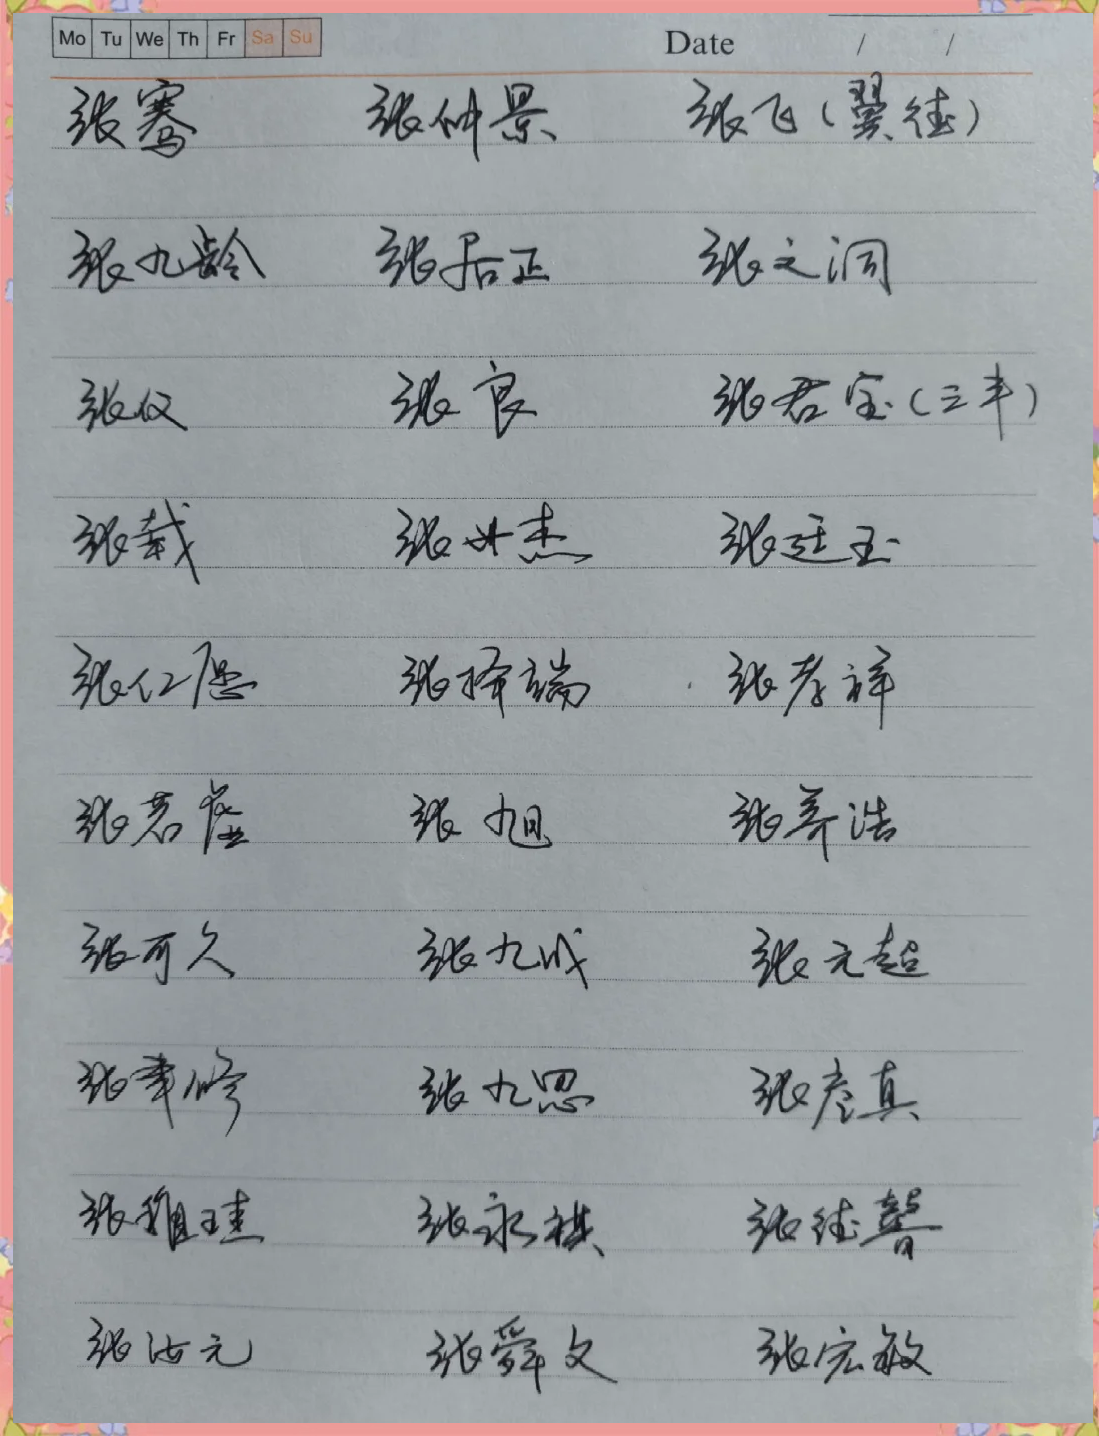 Mo Tu We Th Fr Sa Su Date / /
张骞 张仲景 张飞(翼德)
张九龄 张居正 张之洞
张仪 张良 张君宝(三丰)
张载 张世杰 张廷玉
张仁愿 张择端 张孝祥
张若虚 张旭 张养浩
张可久 张九成 张元超
张聿修 张九思 张彦真
张雅琪 张永祺 张德馨
张汝元 张舜文 张宏敏